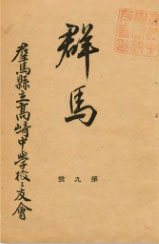 群馬
第九號
群馬縣立高崎中學校々友會